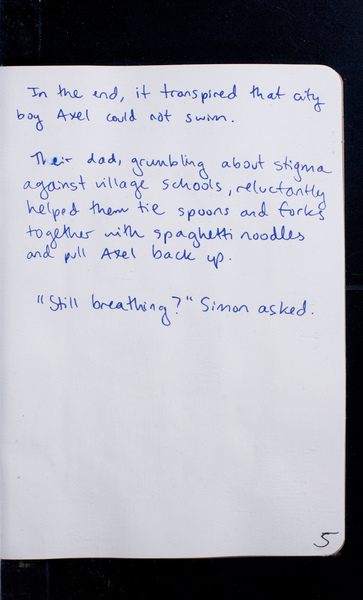 In the end, it transpired that city
boy Axel could not swim.
Their dad, grumbling about stigma
against village schools, reluctantly
helped them tie spoons and forks
together with spaghetti noodles
and pull Axel back up.
"Still breathing?" Simon asked.
5